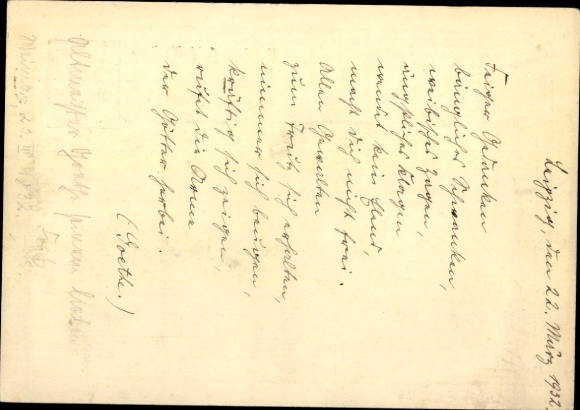 Leipzig, den 22. März 1932.
Feiger Gedanken
bängliches Schwanken,
weibisches Zagen,
ängstliches Klagen
wendet kein Elend,
macht dich nicht frei.
Allen Gewalten
zum Trutz sich erhalten,
nimmer sich beugen,
kräftig sich zeigen,
rufet die Arme
der Götter herbei.
(Goethe.)
Altmeister Goethe lieben